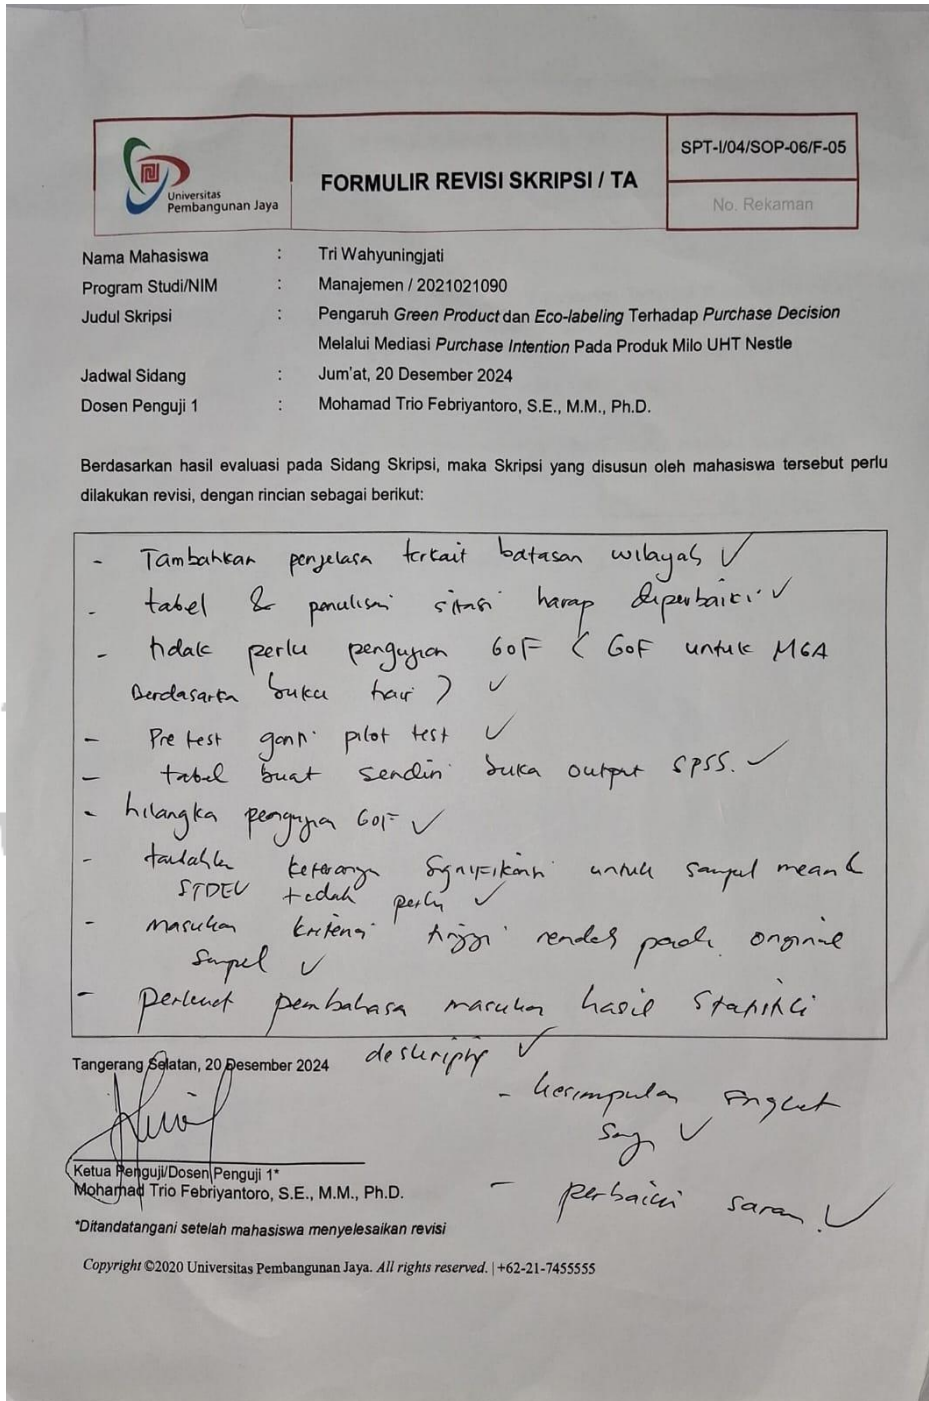 Universitas
Pembangunan Jaya
FORMULIR REVISI SKRIPSI / TA
SPT-I/04/SOP-06/F-05
No. Rekaman
Nama Mahasiswa : Tri Wahyuningjati
Program Studi/NIM : Manajemen / 2021021090
Judul Skripsi : Pengaruh Green Product dan Eco-labeling Terhadap Purchase Decision
Melalui Mediasi Purchase Intention Pada Produk Milo UHT Nestle
Jadwal Sidang : Jum'at, 20 Desember 2024
Dosen Penguji 1 : Mohamad Trio Febriyantoro, S.E., M.M., Ph.D.
Berdasarkan hasil evaluasi pada Sidang Skripsi, maka Skripsi yang disusun oleh mahasiswa tersebut perlu
dilakukan revisi, dengan rincian sebagai berikut:
- Tambahkan penjelasa terkait batasan wilayah ✓
- tabel & penulisan sitasi harap diperbaiki ✓
- tidak perlu pengujian GoF ( GoF untuk MGA
Berdasarka buku hair ) ✓
- Pre test ganti pilot test ✓
- tabel buat sendiri buka output SPSS. ✓
- hilangka pengujia GOF ✓
- keterangan signifikansi untuk sampel mean &
STDEV tidak perlu ✓
- masukan kriteria tinggi rendah pada original
sampel ✓
- perkuat pembahasa masukan hasil statistik
deskriptif ✓
- kesimpulan singkat
saja ✓
- perbaiki saran ✓
Tangerang Selatan, 20 Desember 2024
Ketua Penguji/Dosen Penguji 1*
Mohamad Trio Febriyantoro, S.E., M.M., Ph.D.
*Ditandatangani setelah mahasiswa menyelesaikan revisi
Copyright ©2020 Universitas Pembangunan Jaya. All rights reserved. | +62-21-7455555